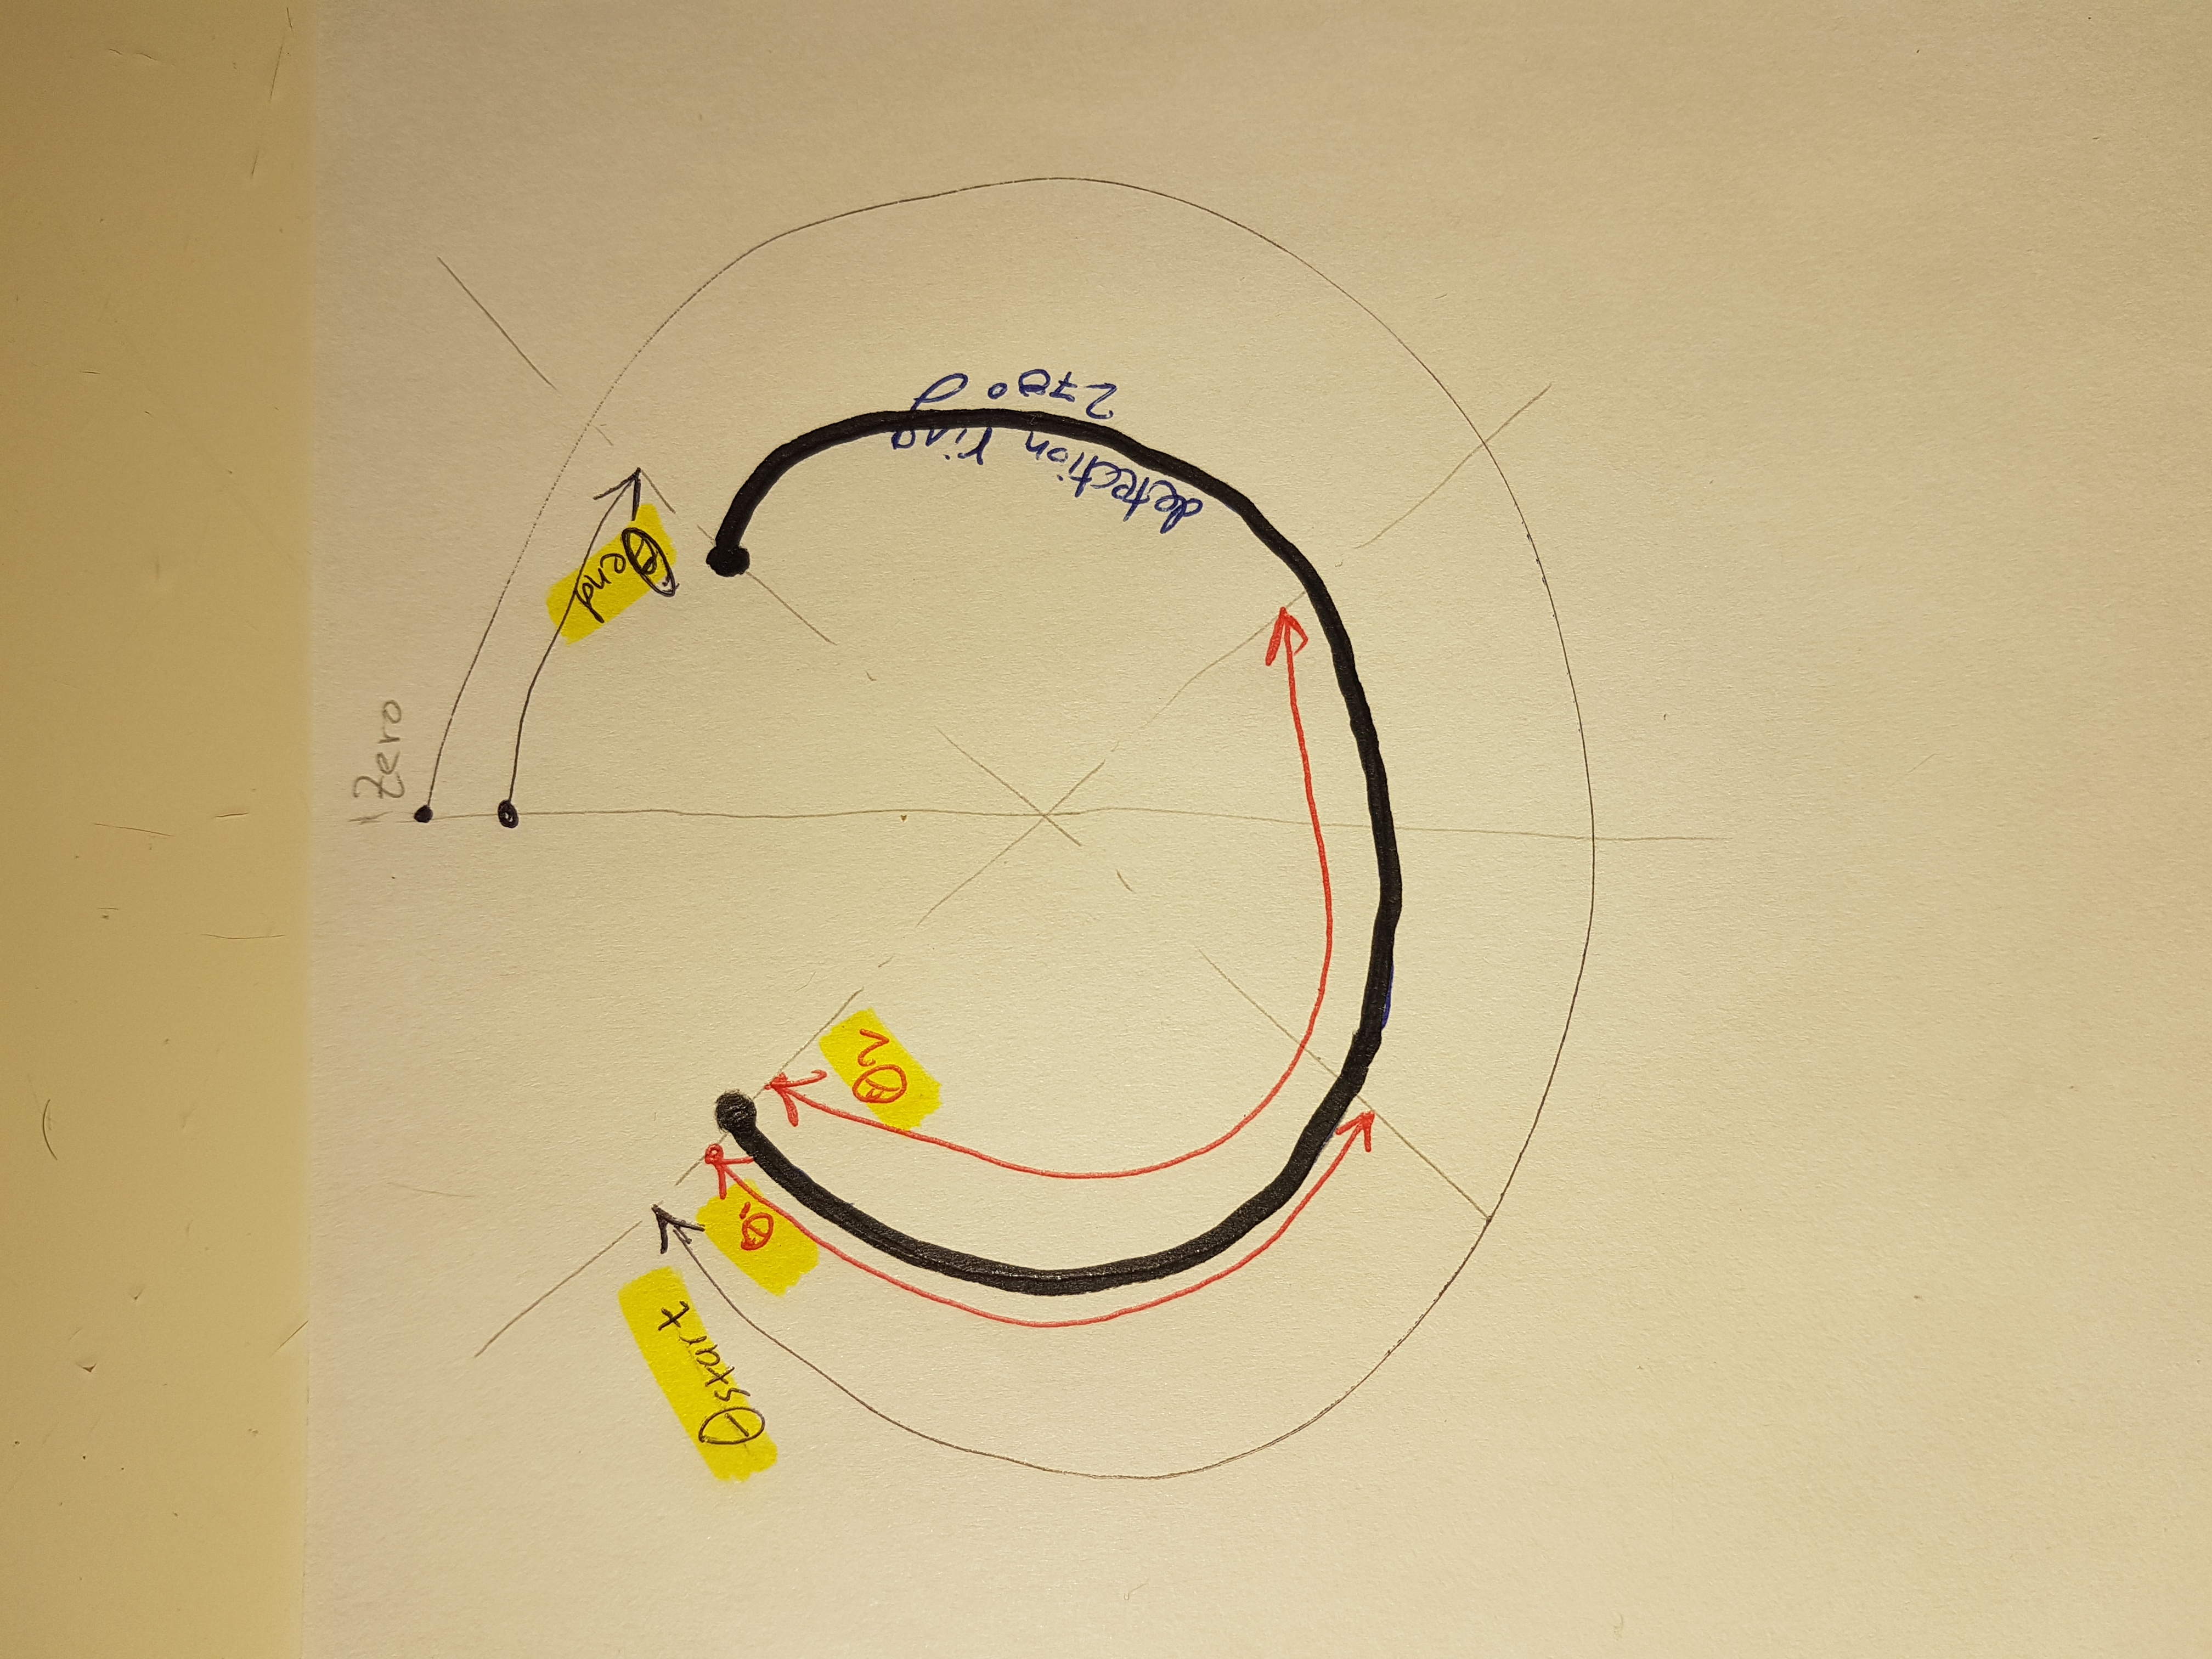 Zero
θend
θstart
θ1
θ2
detection ring
270°